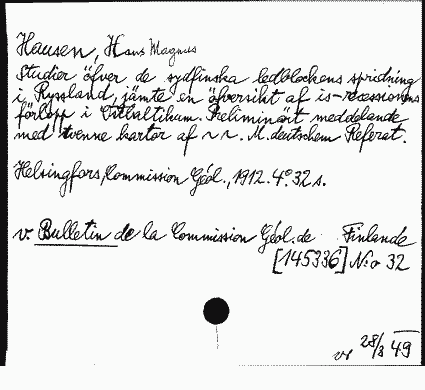 Hausen, Hans Magnus
Studier öfver de sydfinska ledblockens spridning
i Ryssland, jämte en öfversikt af is-recessionens
förlopp i Ostbaltikum. Preliminärt meddelande
med tvenne kartor af ~ ~. M. deutschem Referat.
Helsingfors, Commission Géol., 1912. 4:o 32 s.
v. Bulletin de la Commission Géol. de Finlande
[145336] N:o 32
28/3 49